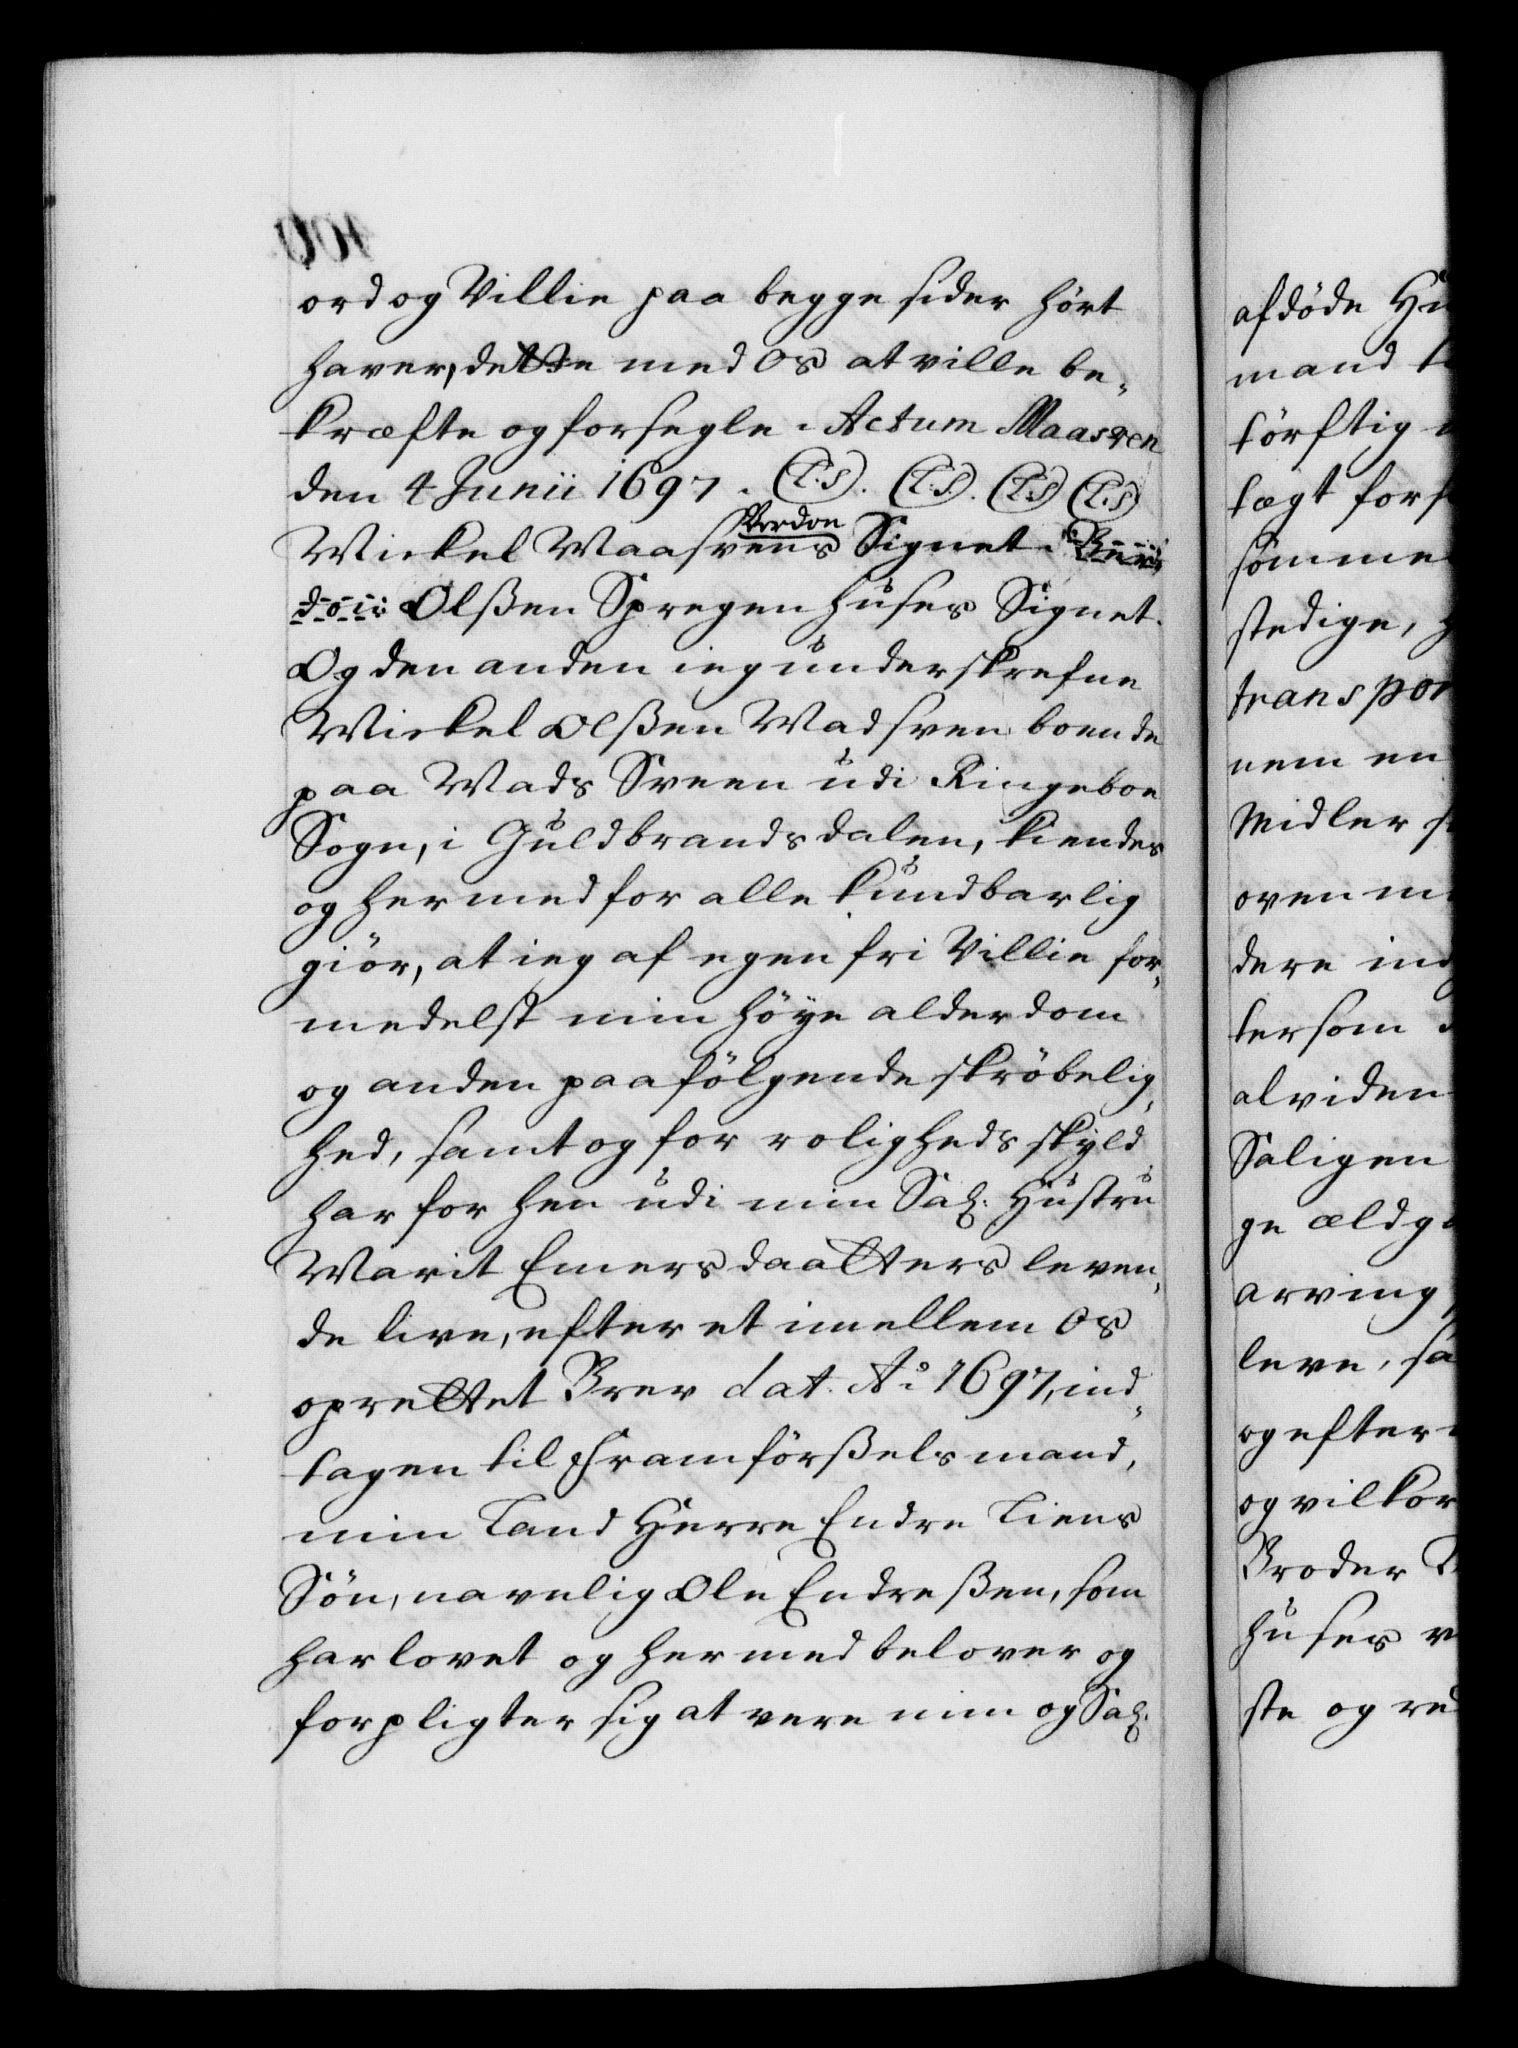 ord og Villie paa begge sider hört
haver, dette med os at ville be„
kræfte og forsegle. Actum Maasven
den 4 Junii 1697. (L.S). (L.S). (L.S) (L.S)
Perdon
Mickel Maasvens Signet.
Olßen Spregen huses Signet.
Og den anden ieg underskrefne
Mickel Olßen Madsven boende
paa Mads Sveen udi Ringeboe
Sogn, i Guldbrandsdalen, kiendes
og hermed for alle kundbarlig
giör, at ieg af egen fri Villie for„
medelst min höye alderdom
og anden paafölgende skröbelig„
hed, samt og for roligheds skyld
har for hen udi min Sal. Hustru
Marit Emersdaatters leven„
de live, efter et imellem os
oprettet Brev dat. Ao 1697, ind„
tagen til Framförßels mand,
min Land Herre Endre Liens
Sön, navnlig Ole Endreßen, som
har lovet og hermed belover og
forpligter sig at vere min og Sal.
afdöde
mand
törftig
lagt
stedige,
nem en
Midler
dere
tersom
alviden
Saligen
ge
arving
leve,
og efter
og vilkor
Broder
huses
ste og